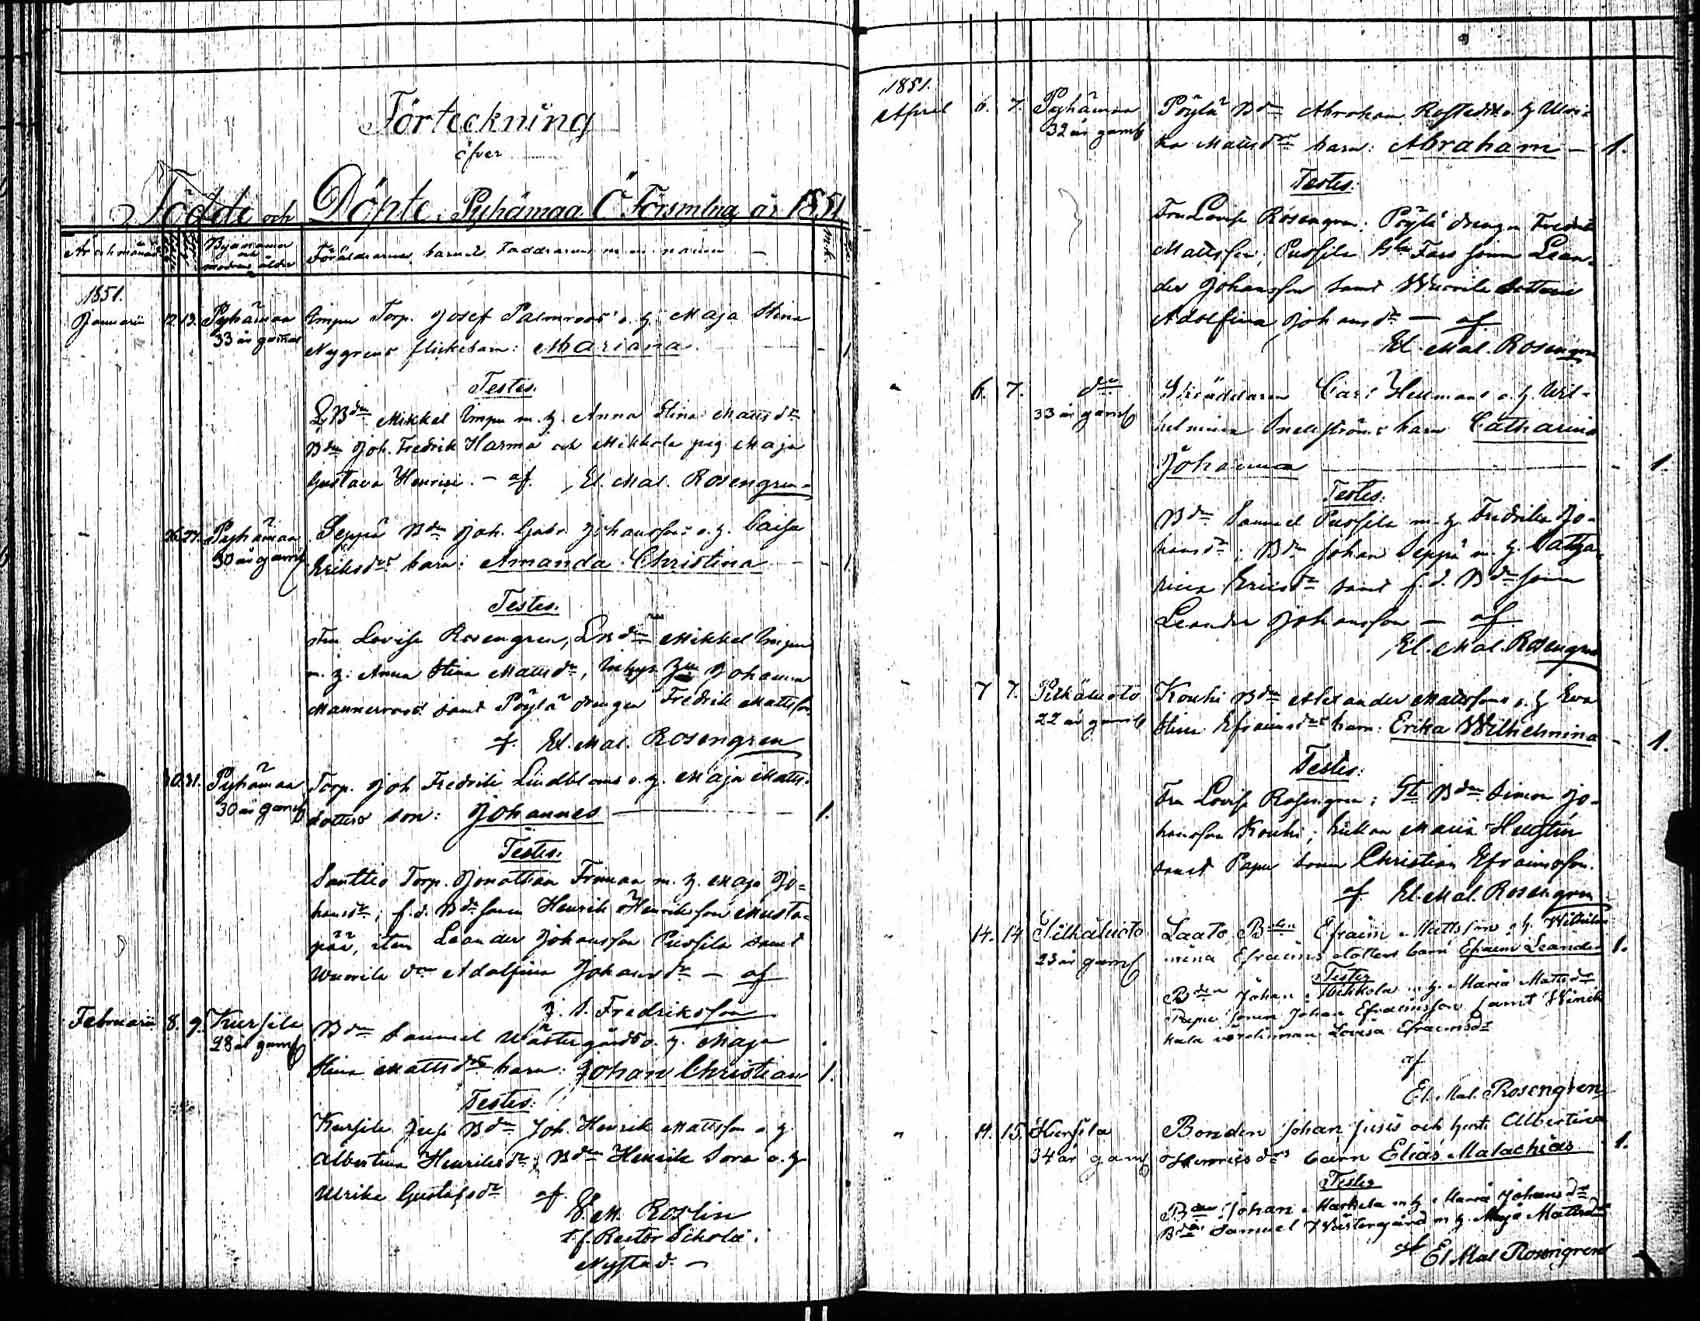 Förteckning
öfver
Födde och Döpte i Pyhämaa Ö Försmlng år 1851
År och månad
Byarnamn
och
modrens ålder
Föräldrarne, barnets, Faddrarnes m. m. namn
1851.
Januarii 12. 13. Pyhämaa Torp. Josef Palmroos' o. h. Maja Stina
33 år gammal Nygrens flickebarn: Mariana. 1
Testes.
Bdn Mikkel m. h. Anna Stina Mattsdr
Bdn Joh. Fredrik Harma och Mikkola pig. Maja
Gustava Henrics. – af El. Mal. Rosengren
26. 27. Pyhämaa Seppä Bdn Joh. Gabr. Johansson's o. h. Caisa
30 år gamml Eriksdrs barn: Amanda Christina 1
Testes.
Fru Lovisa Rosengren, Mikkel
m. h: Anna Stina Mattsdr, Johanna
Mannerroos samt Pöylä drengen Fredrik Mattsson
af El. Mal. Rosengren
30. 31. Pyhämaa Torp. Joh Fredrik Lindbloms o. h. Maja Matts-
30 år gamml dotters son: Johannes 1.
Testes.
Santtio Torp. Jonathan Froman m. h. Maja Jo-
hansdr; f. d. Bdesonen Henrik Henriksson Musta-
pää, item Leander Johansson Puosila samt
Wuorila dr Adolfina Johansdr – af
J. S. Fredriksson
Februarii 8. 9. Kursila Bdn Samuel Wästergårds o. h. Maja
28 år gamml Stina Mattsdrs barn: Johan Christian 1.
Testes.
Kursila Juss Bdn Joh. Henrik Mattsson o. h.
Albertina Henriksdr; Bdn Henrik Sora o. h.
Ulrika Gustafsdr af
E. M. Roslin
t. f. Rector Scholæ.
Nystad. –
1851.
April 6. 7. Pyhämaa Pöylä Bdn Abraham Rostedts o. h Ulri-
32 år gamml ka Mattsdrs barn: Abraham – 1.
Testes.
Fru Lovisa Rosengren; Pöylä drengen Fredrik
Mattsson; Puosila Fars sonen Lean-
der Johansson samt Wuorila dottern
Adolfina Johansdr – af
El. Mal. Rosengren
6. 7. do Skräddaren Carl Hellmans o. h. Wil-
33 år gamml helmina Snellströms barn Catharina
Johanna – 1.
Testes.
Bdn Samuel Puosila m. h. Fredrika Jo-
hansdr; Bdn Johan Seppä m. h. Catha-
rina Ericsdr samt f. d. Bdesonen
Leander Johansson – af
El. Mal. Rosengren
7 7. Pitkäluoto Kouhi Bdn Alexander Mattssons o. h Eva
22 år gamml Stina Efraimsdrs barn: Erika Wilhelmina – 1.
Testes.
Fru Lovisa Rosengren; Bdn Simon Jo-
hansson Kouhi; Enkan Maria Hugtin
samt Papu sonen Christian Efraimsson.
af El. Mal. Rosengren
14. 14 Pitkäluoto Laato Bden Efraim Mattsson o. h. Wilhel-
23 år gamml mina Efraims dotters barn Efraim Leander 1.
Testes
Bden Johan Mikkola m. h. Maria Mattsdr
Papu sonen Johan Efraimsson samt
Lovisa Efraimsdr
af
El. Mal. Rosengren
14. 15. Kursila Bonden Johan Jusis och hust. Albertina
34 år gaml Henricsdrs barn Elias Malachias 1.
Testes
Bden Johan Markula m. h. Maria Johansdr
Bdn Samuel Wästergård m. h. Maja Mattsdr
af El Mal Rosengren